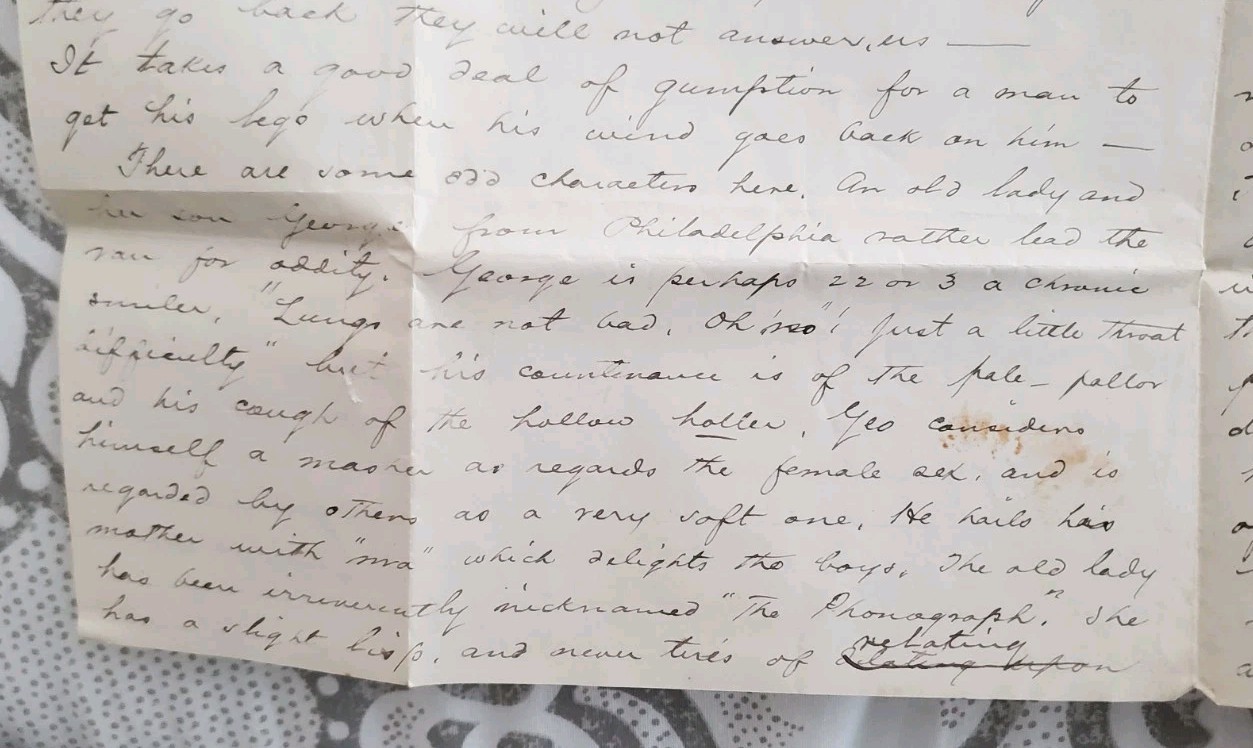 they go back they will not answer, us —
It takes a good deal of gumption for a man to
get his legs when his wind goes back on him —
There are some odd characters here. An old lady and
her son George from Philadelphia rather lead the
van for oddity. George is perhaps 22 or 3 a chronic
smiler, "Lungs are not bad, Oh no"! Just a little throat
difficulty" but his countenance is of the pale - pallor
and his cough of the hollow holler. Geo considers
himself a masher as regards the female sex, and is
regarded by others as a very soft one. He hails his
mother with "ma" which delights the boys. The old lady
has been irreverently nicknamed "The Phonograph." She
has a slight lisp, and never tires of relating